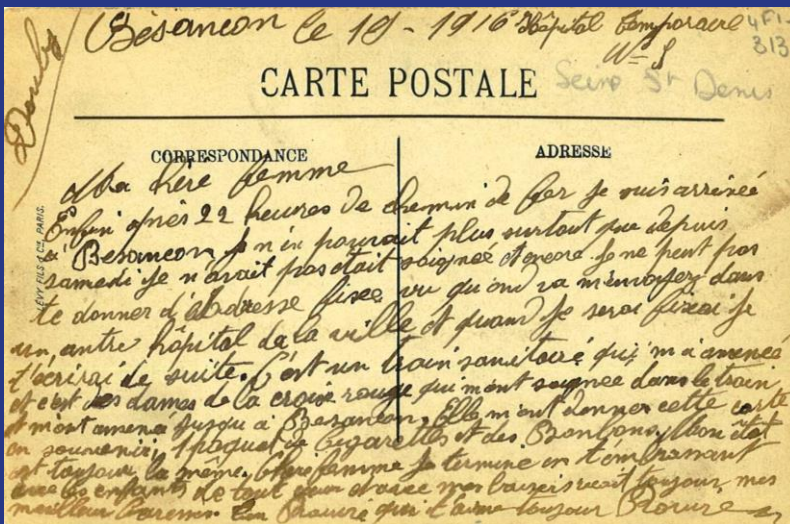 Doubs
Besançon le 19 - 1916 Hôpital temporaire
N= 8
4 FI-
313
CARTE POSTALE
Seine St Denis
CORRESPONDANCE
ADRESSE
LÉVY FILS & Cie, PARIS.
Ma chère femme
Enfin après 22 heures de chemin de fer je suis arrivée
a Besançon je n'en pouvait plus surtout que depuis
samedi je n'avait pas était soignée et encore je ne peut pas
te donner d'adresse fixée vu qu'on va m'envoyez dans
un autre hôpital de la ville et quand je serai fixai je
t'écrirai de suite. C'est un train sanitaire qui m'a amenée
et c'est des dames de la croix rouge qui m'ont soignée dans le train
et m'ont amené jusqu'a Besançon. Elle m'ont donner cette carte
en souvenir, 1 paquet de cigarettes et des Bonbons. Mon état
est toujour la même. Chère femme je termine en t'embrassant
les enfants de tout avec mes toujour mes
meilleur qui t'aime toujour